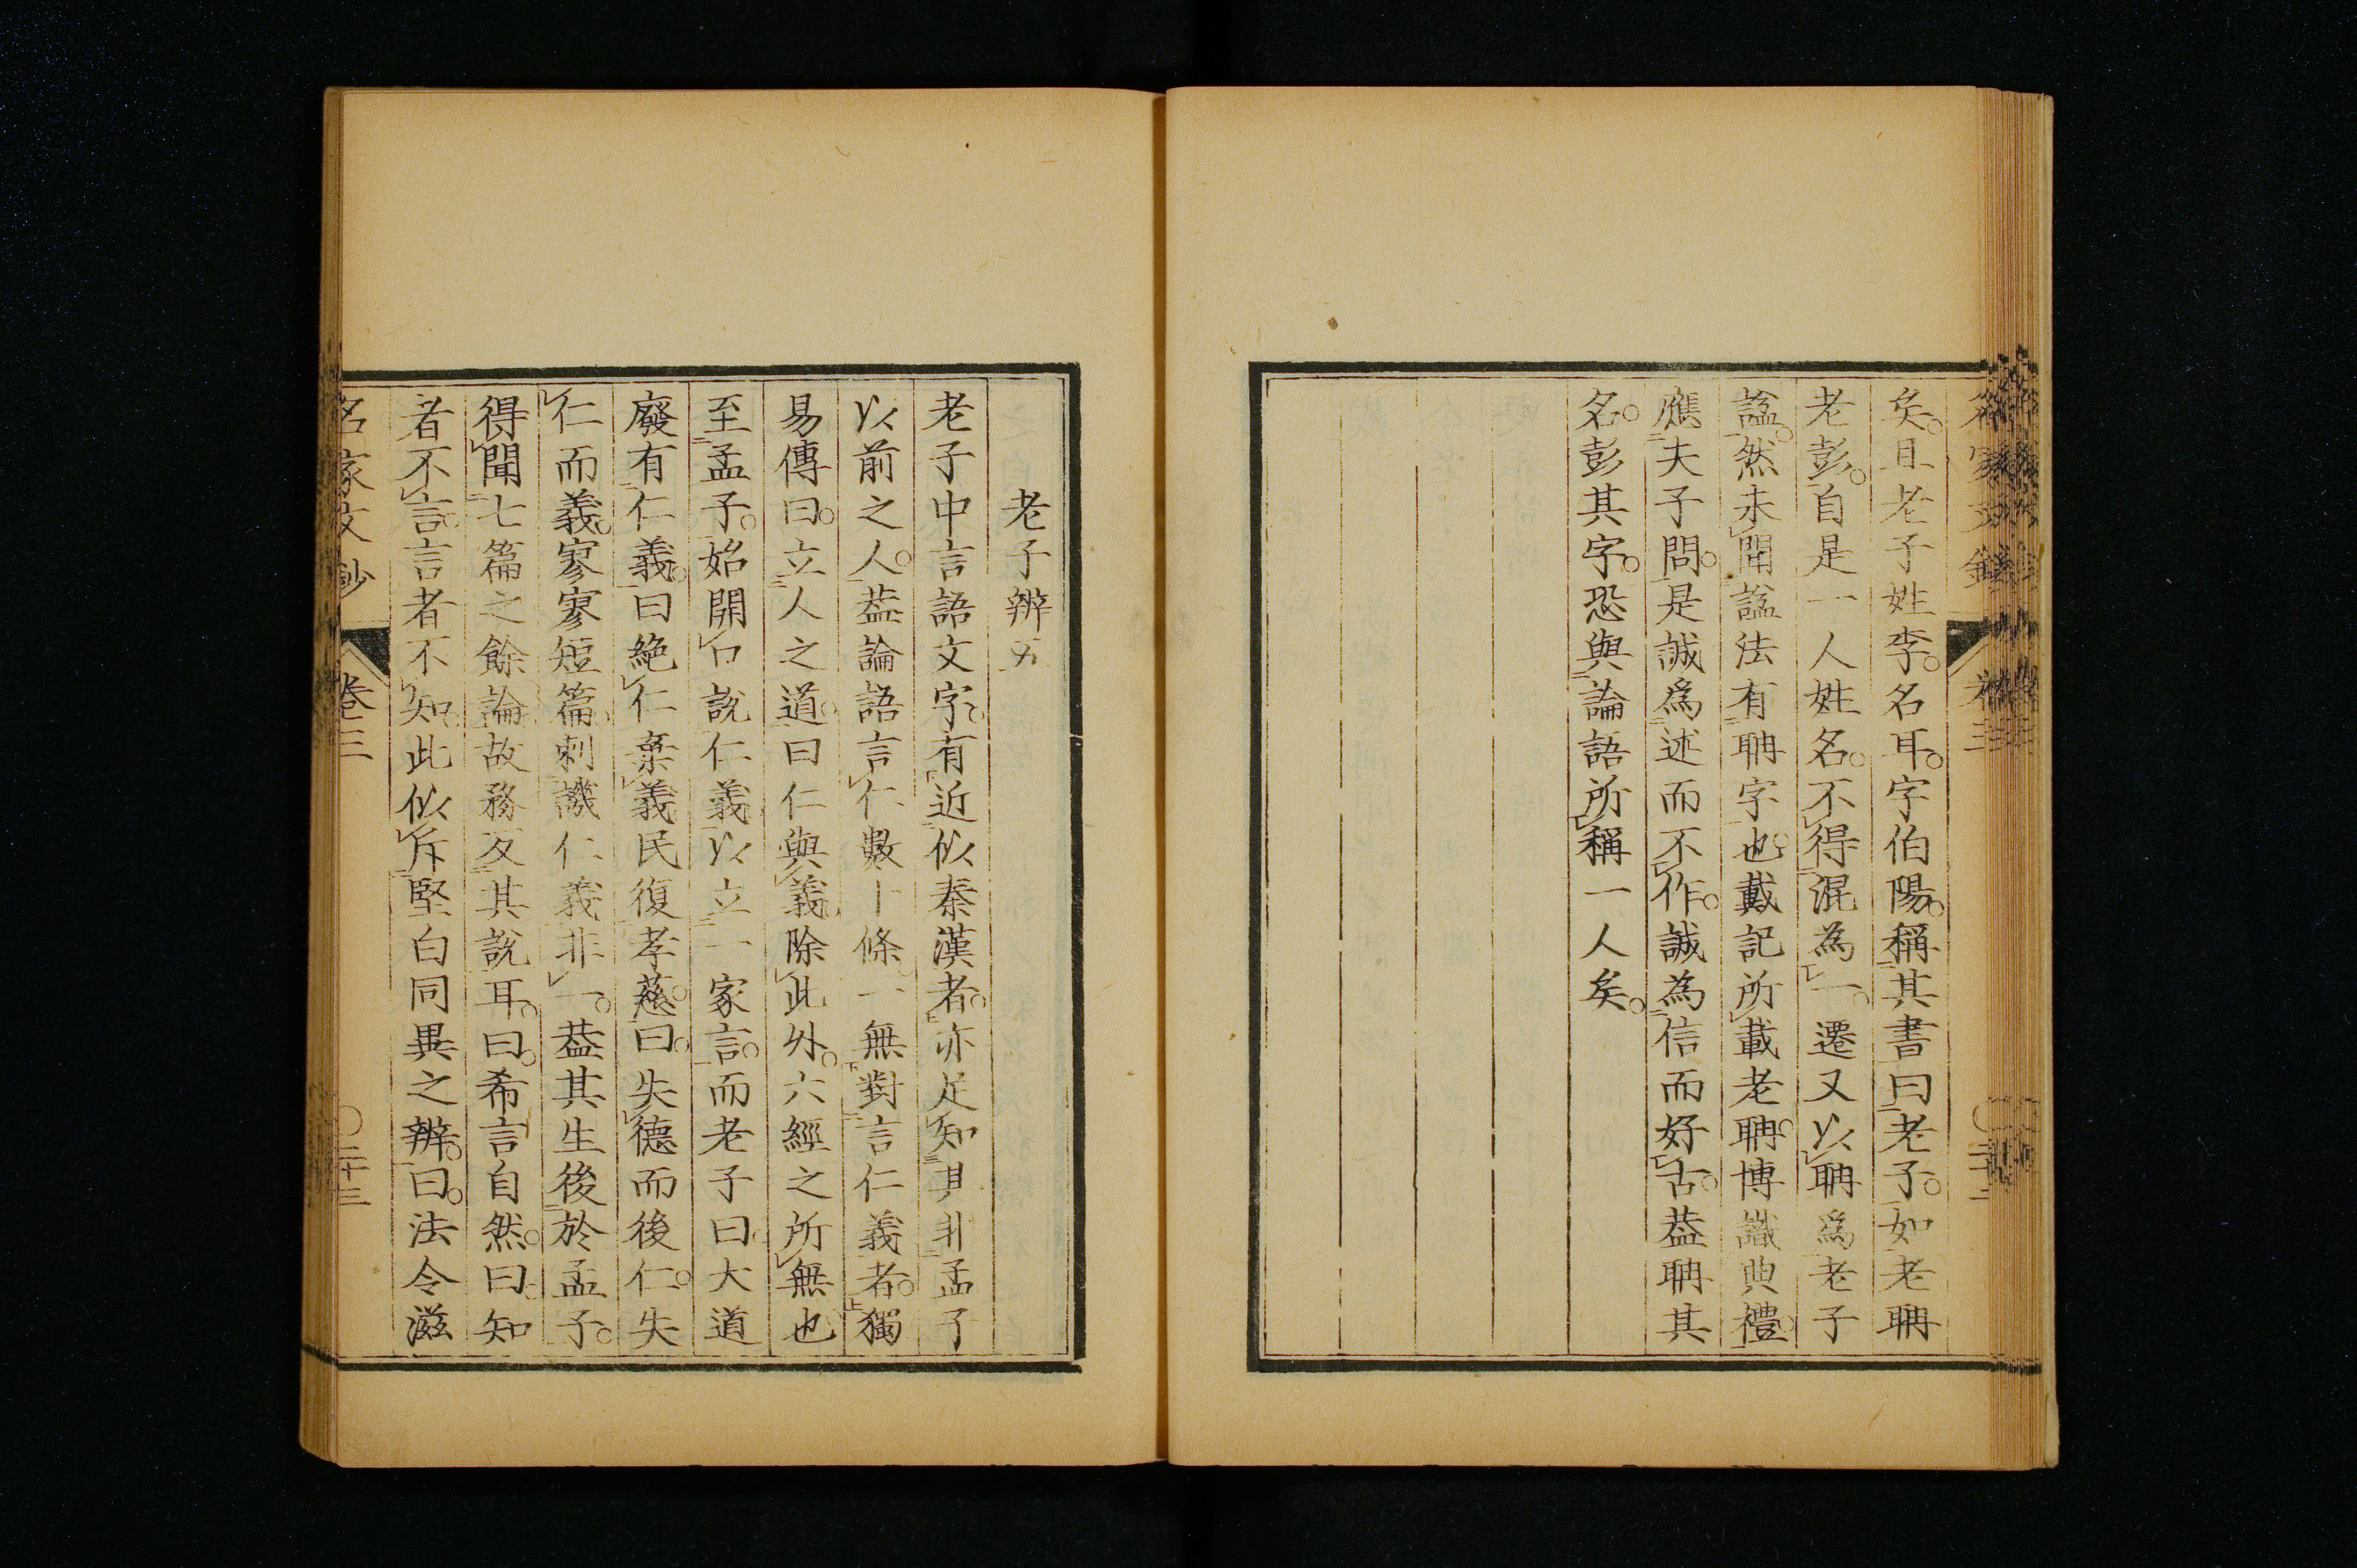 矣。且老子姓李。名耳。字伯陽。稱其書曰老子。如老聃
老彭。自是一人姓名。不得混為一。遷又以聃爲老子
諡。然未聞諡法有聃字也。戴記所載老聃。博識典禮。
應夫子問。是誠爲述而不作。誠為信而好古。葢聃其
名。彭其字。恐與論語所稱一人矣。
老子辨五
老子中言語文字。有近似秦漢者。亦足知其非孟子
以前之人。葢論語言仁數十條。一無對言仁義者。獨
易傳曰。立人之道。曰仁與義。除此外。六經之所無也
至孟子。始開口說仁義以立一家言。而老子曰。大道
廢有仁義。曰絶仁棄義民復孝慈。曰。失德而後仁。失
仁而義。寥寥短篇。刺譏仁義非一。葢其生後於孟子。
得聞七篇之餘論。故務反其說耳。曰。希言自然。曰。知
者不言。言者不知。此似斥堅白同異之辨。曰。法令滋
名家文鈔
卷三
二十三